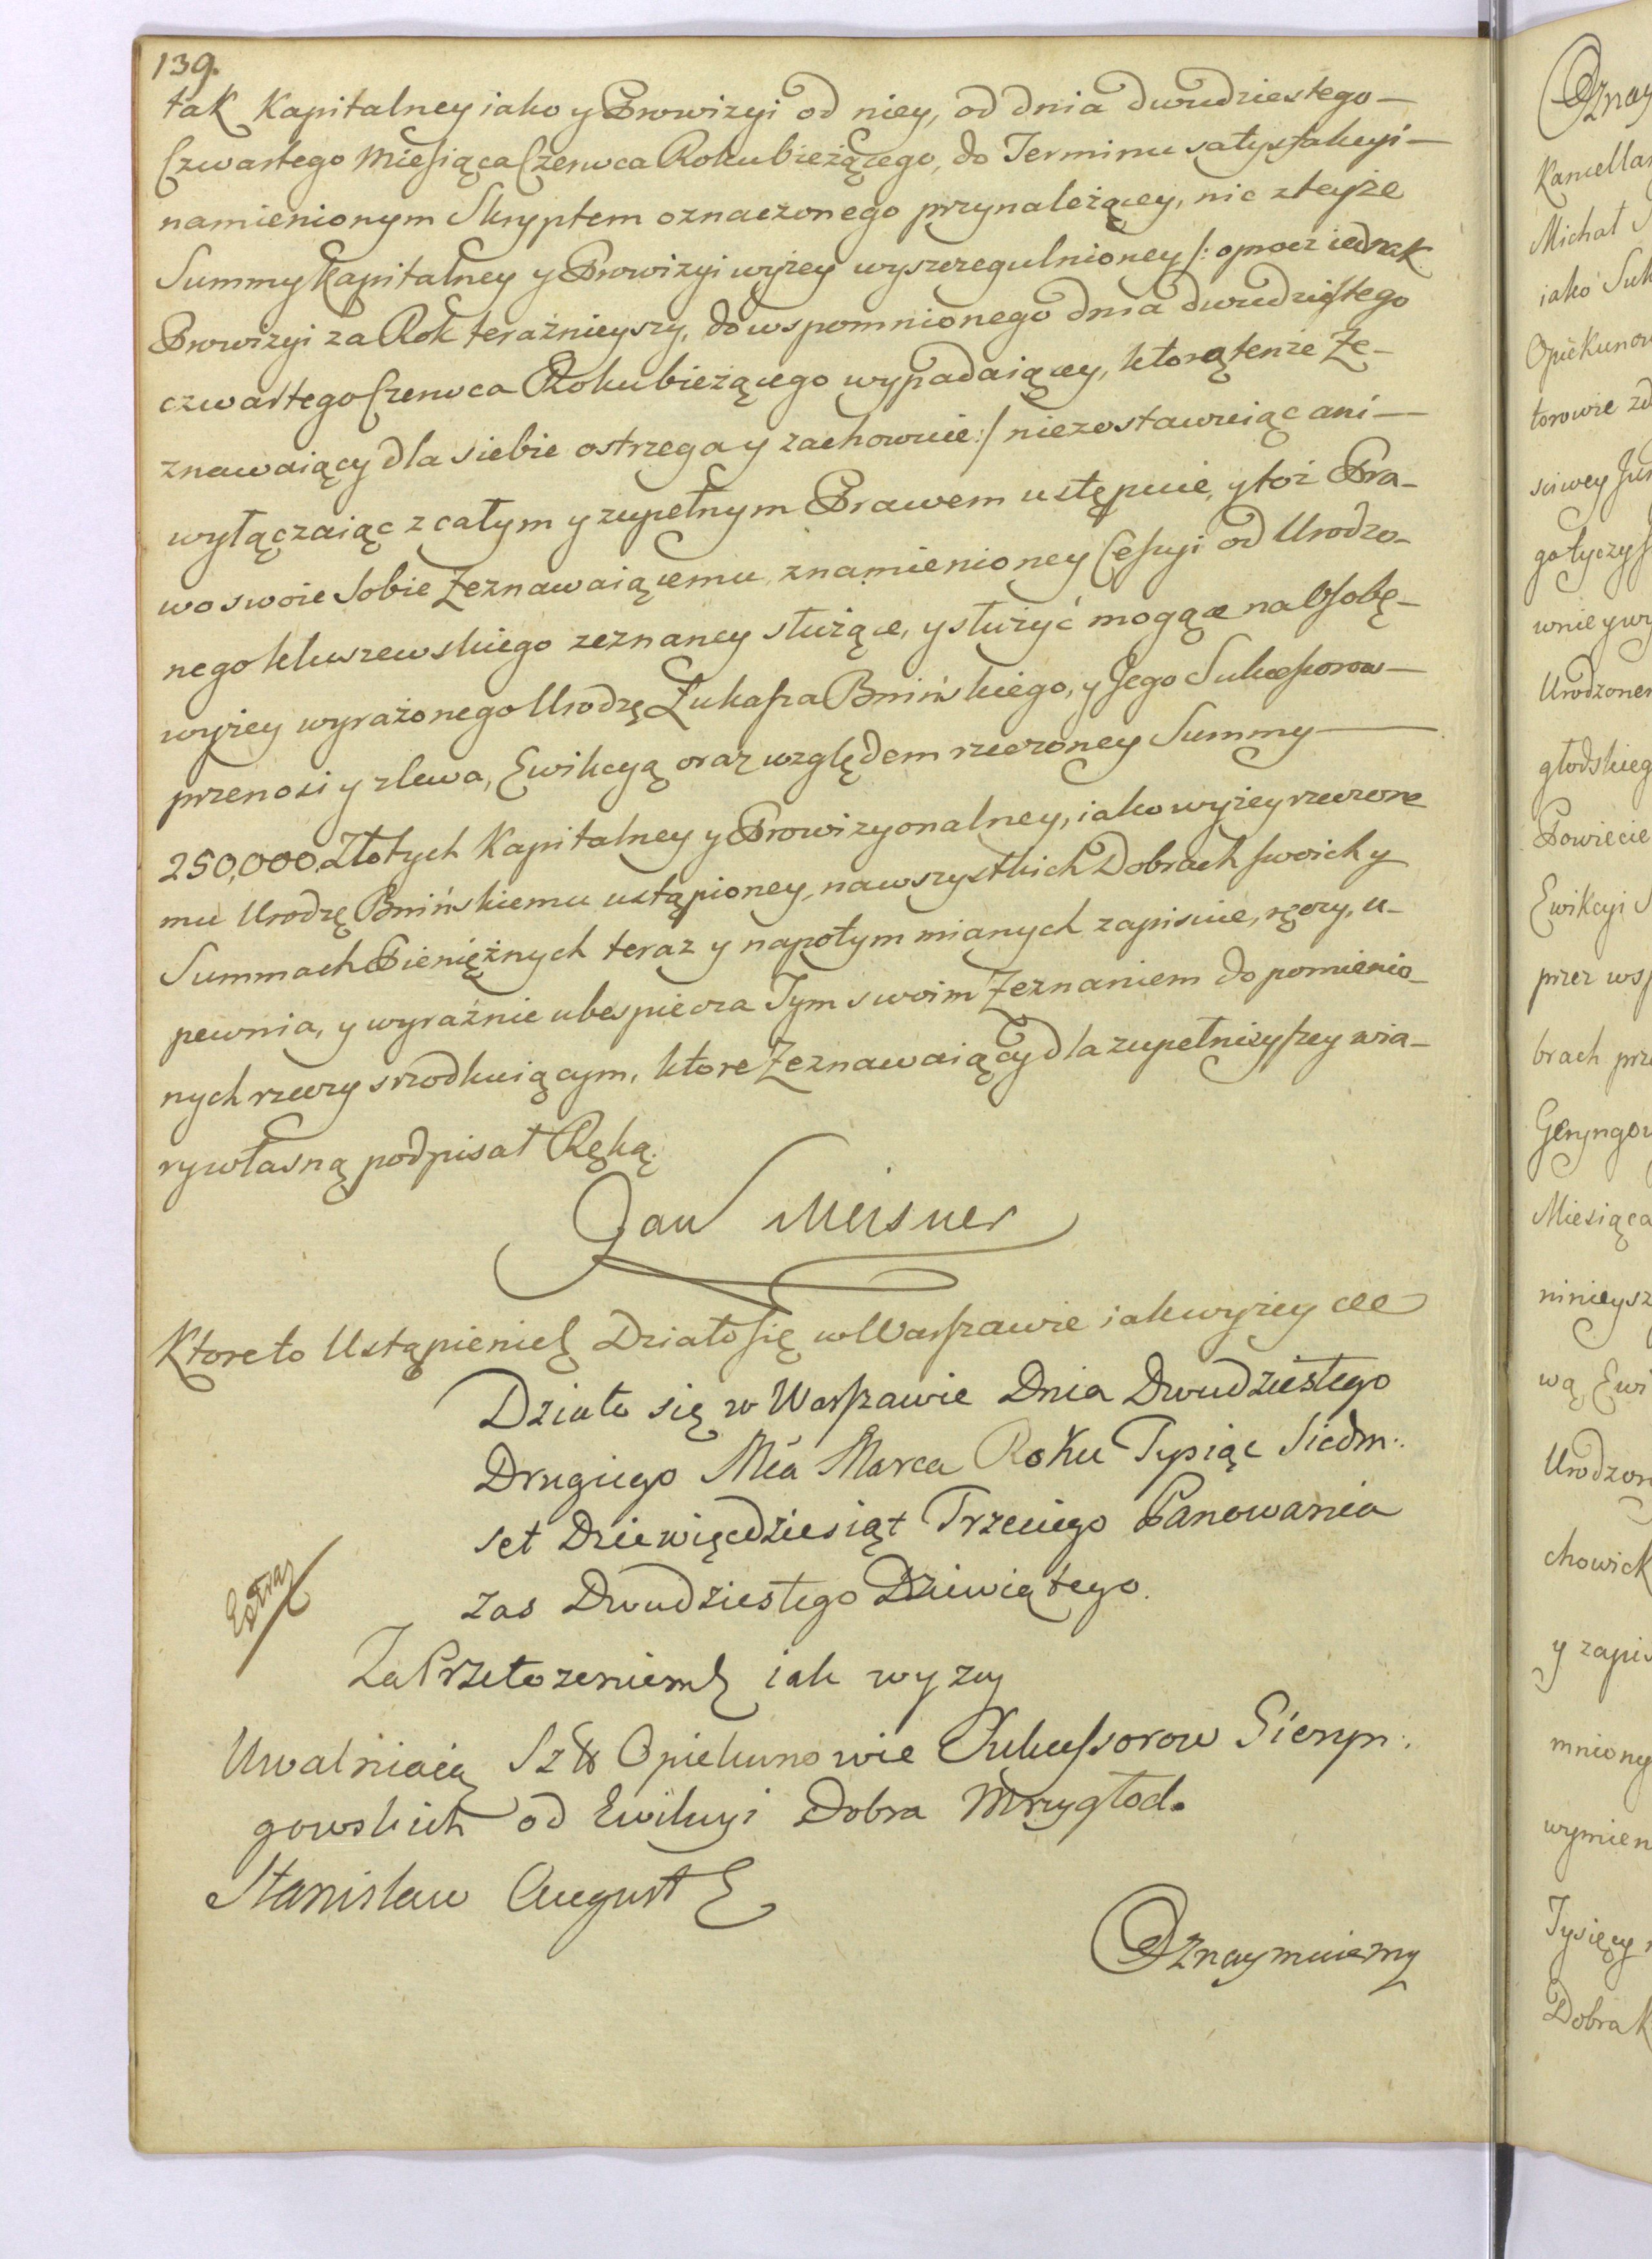 139.
tak Kapitalney iako y Prowizyi od niey, od dnia dwudziestego-
Czwartego Miesiąca Czerwca Roku bieżącego, do Terminu satysfakcyi-
namienionym Skryptem oznaczonego przynależącey, nic zteyże
Summy Kapitalney y Prowizyi wyżey wyszczegulnioney /: oprocz iednak
Prowizyi za Rok teraźnieyszy, do wspomnionego dnia dwudziestego
czwartego Czerwca Roku bieżącego wypadaiącey, ktorą tenże Ze-
znawaiący dla siebie ostrzega y zachowuie :/ niezostawuiąc ani-
wyłączaiąc z całym y zupełnym Prawem ustępuie, y toż Pra-
wo swoie Sobie Zeznawaiącemu, z namienioney Cessyi od Urodzo-
nego Kluszewskiego zeznaney służące, y służyć mogące na Osobę-
wyżey wyrażonego Urodzę Łukasza Bnińskiego, y Jego Sukcessorow-
przenosi y zlewa, Ewikcyą oraz względem rzeczoney Summy
250,000. Złotych Kapitalney y Prowizyonalney, iako wyżey rzeczone
mu Urodzę Bnińskiemu ustąpioney, na wszystkich Dobrach swoich y
Summach Pieniężnych teraz y napotym mianych zapisuie, ręczy, u-
pewnia, y wyraźnie ubespiecza Tym swoim Zeznaniem do pomienio-
nych rzeczy srzodkuiącym, ktore Zeznawaiący dla zupełnieyszey wia-
ry własną podpisał Ręką.
Jan Meisner
Ktoreto Ustąpienie Działo się w Warszawie iak wyżey
Działo się w Warszawie Dnia Dwudziestego
Drugiego Mca Marca Roku Tysiąc Siedm:
set Dziewięcdziesiąt Trzeciego Panowania
zas Dwudziestego Dziewiątego.
Extra
Za Przełozeniem iak wyzey
Uwalniaią Opiekunowie Sukcessorow Gieryn:
gowskich od Ewikcyi Dobra Mrzygłod.
Stanisław August
Oznaymuiemy
Oznay
Kancellar
Michał
iako Suk
Opiekunow
torowie
sciwey
wnie y wy
Urodzone
głodskieg
Powiecie
Ewikcyi
przez wsp
brach prz
Geryngow
Miesiąca
ninieysz
wą, Ewi
Urodzon
chowick
y zapis
mniony
wymien
Tysięcy
Dobra